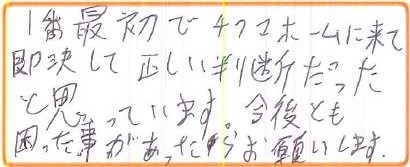 1番最初でチカマホームに来て
即決して正しい判断だった
と思っています。今後とも
困った事があったらお願いします。